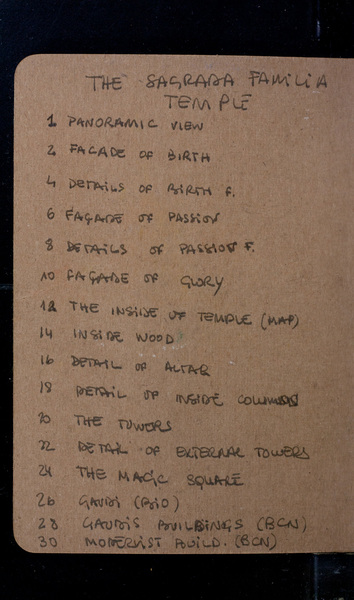 THE SAGRADA FAMILIA
TEMPLE
1 PANORAMIC VIEW
2 FACADE OF BIRTH
4 DETAILS OF BIRTH F.
6 FAÇADE OF PASSION
8 DETAILS OF PASSION F.
10 FAÇADE OF GLORY
12 THE INSIDE OF TEMPLE (MAP)
14 INSIDE WOOD
16 DETAIL OF ALTAR
18 DETAIL OF INSIDE COLUMNS
20 THE TOWERS
22 DETAIL OF EXTERNAL TOWERS
24 THE MAGIC SQUARE
26 GAUDI (BIO)
28 GAUDIS BUILDINGS (BCN)
30 MODERNIST BUILD. (BCN)